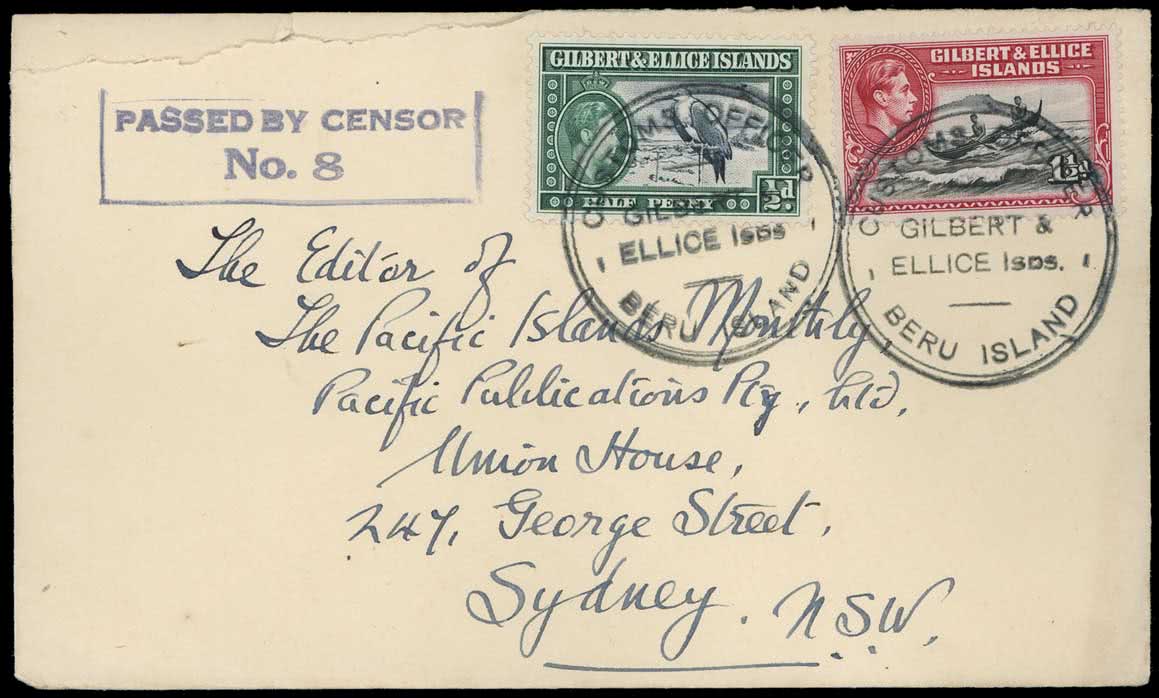 PASSED BY CENSOR
No. 8
GILBERT & ELLICE ISLANDS
HALF PENNY
½d.
GILBERT & ELLICE
ISLANDS
1½d
CUSTOMS OFFICER
GILBERT &
ELLICE ISDS
BERU ISLAND
CUSTOMS OFFICER
GILBERT &
ELLICE ISDS.
BERU ISLAND
The Editor of
The Pacific Islands Monthly,
Pacific Publications Pty., Ltd,
Union House,
247, George Street,
Sydney. NSW.